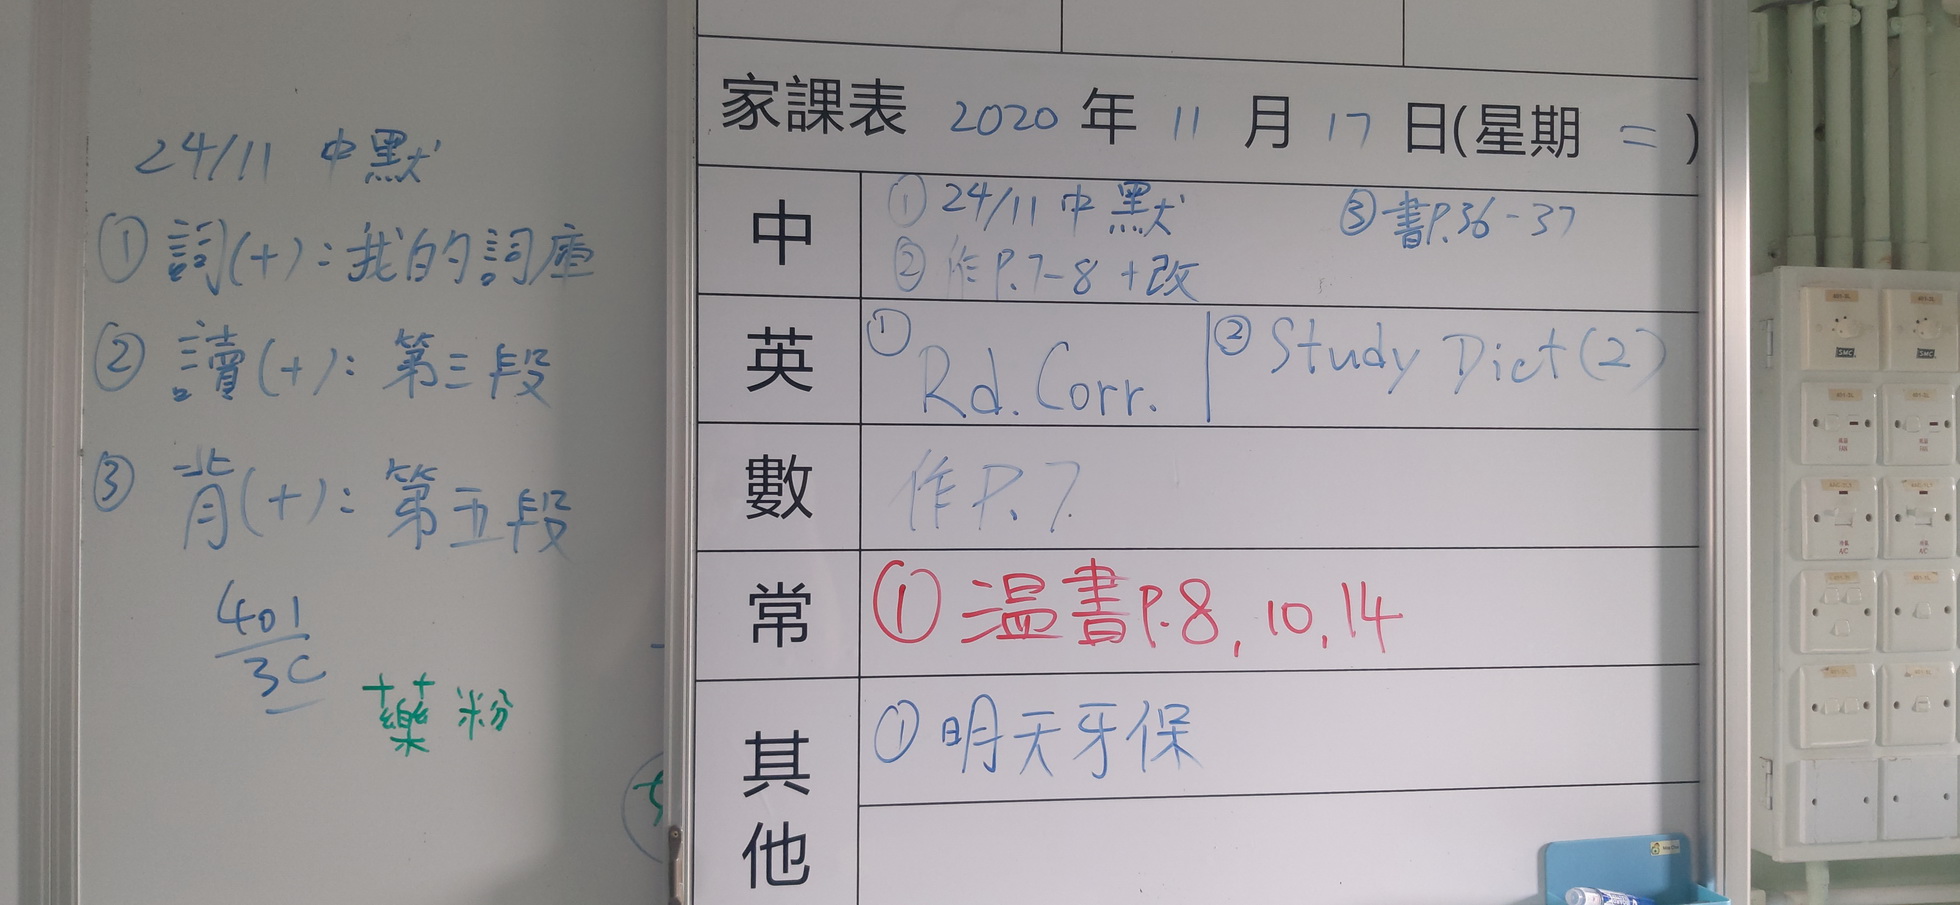 24/11 中默
① 詞(+):我的詞庫
② 讀(+):第三段
③ 背(+):第五段
401
3C
藥粉
家課表 2020 年 11 月 17 日(星期 二)
中
① 24/11 中默 ③ 書P.36-37
② 作P.7-8 +改
英
① Rd. Corr. | ② Study Dict (2)
數
作P.7
常
① 温書P.8, 10, 14
其他
① 明天牙保
SMC
SMC